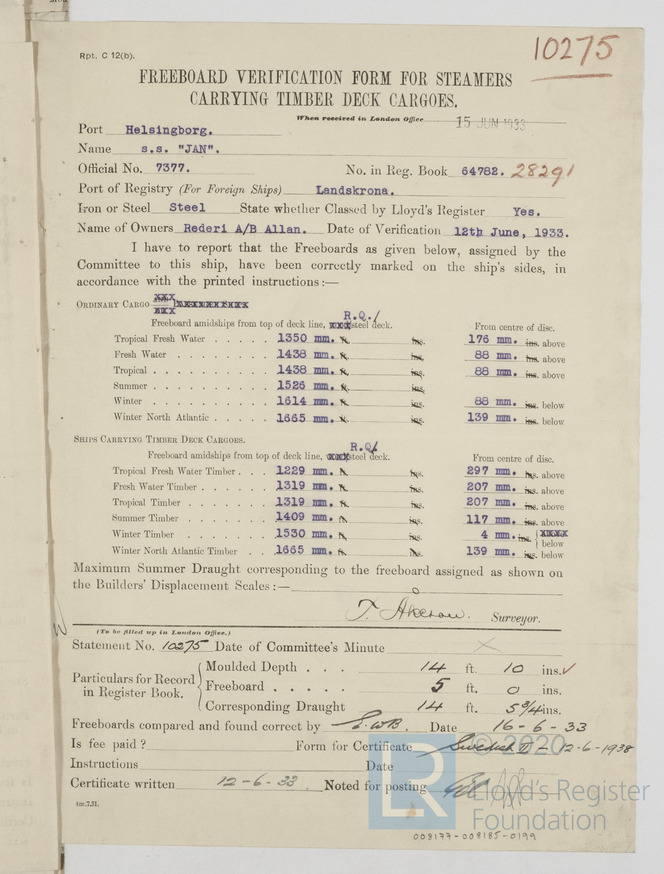 Rpt. C 12(b).
10275
FREEBOARD VERIFICATION FORM FOR STEAMERS
CARRYING TIMBER DECK CARGOES.
When received in London Office 15 JUN 1933
Port Helsingborg.
Name s.s. "JAN".
Official No. 7377. No. in Reg. Book 64782. 28291
Port of Registry (For Foreign Ships) Landskrona.
Iron or Steel Steel State whether Classed by Lloyd's Register Yes.
Name of Owners Rederi A/B Allan. Date of Verification 12th June, 1933.
I have to report that the Freeboards as given below, assigned by the
Committee to this ship, have been correctly marked on the ship's sides, in
accordance with the printed instructions:—
ORDINARY CARGO
R.Q./
Freeboard amidships from top of deck line, xxx steel deck. From centre of disc.
Tropical Fresh Water . . . . . 1350 mm. ft. ins. 176 mm. ins. above
Fresh Water . . . . . . . . 1438 mm. ft. ins. 88 mm. ins. above
Tropical . . . . . . . . . . 1438 mm. ft. ins. 88 mm. ins. above
Summer . . . . . . . . . . 1526 mm. ft. ins.
Winter . . . . . . . . . . 1614 mm. ft. ins. 88 mm. ins. below
Winter North Atlantic . . . . . 1665 mm. ft. ins. 139 mm. ins. below
SHIPS CARRYING TIMBER DECK CARGOES.
R.Q/
Freeboard amidships from top of deck line, xxxx steel deck. From centre of disc.
Tropical Fresh Water Timber . . . 1229 mm. ft. ins. 297 mm. ins. above
Fresh Water Timber . . . . . . 1319 mm. ft. ins. 207 mm. ins. above
Tropical Timber . . . . . . . 1319 mm. ft. ins. 207 mm. ins. above
Summer Timber . . . . . . . 1409 mm. ft. ins. 117 mm. ins. above
Winter Timber . . . . . . . 1530 mm. ft. ins. 4 mm. ins. xxxx below
Winter North Atlantic Timber . . 1665 mm. ft. ins. 139 mm. ins. below
Maximum Summer Draught corresponding to the freeboard assigned as shown on
the Builders' Displacement Scales:—
Surveyor.
(To be filled up in London Office.)
Statement No. 10275 Date of Committee's Minute
Particulars for Record in Register Book.
Moulded Depth . . . 14 ft. 10 ins.
Freeboard . . . . . 5 ft. 0 ins.
Corresponding Draught 14 ft. 5 3/4 ins.
Freeboards compared and found correct by Date 16-6-33
Is fee paid? Form for Certificate Swedish 12-6-1938
Instructions Date
Certificate written 12-6-33. Noted for posting
4m.7.31.
© 2020
LR
Lloyd's Register
Foundation
008177-008185-0199